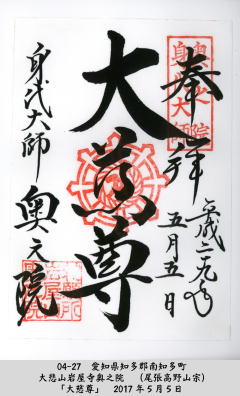 奉拝
平成二十九年
五月五日
大慈尊
身代大師
奥之院
04-27 愛知県知多郡南知多町
大慈山岩屋寺奥之院 (尾張高野山宗)
「大慈尊」 2017年5月5日